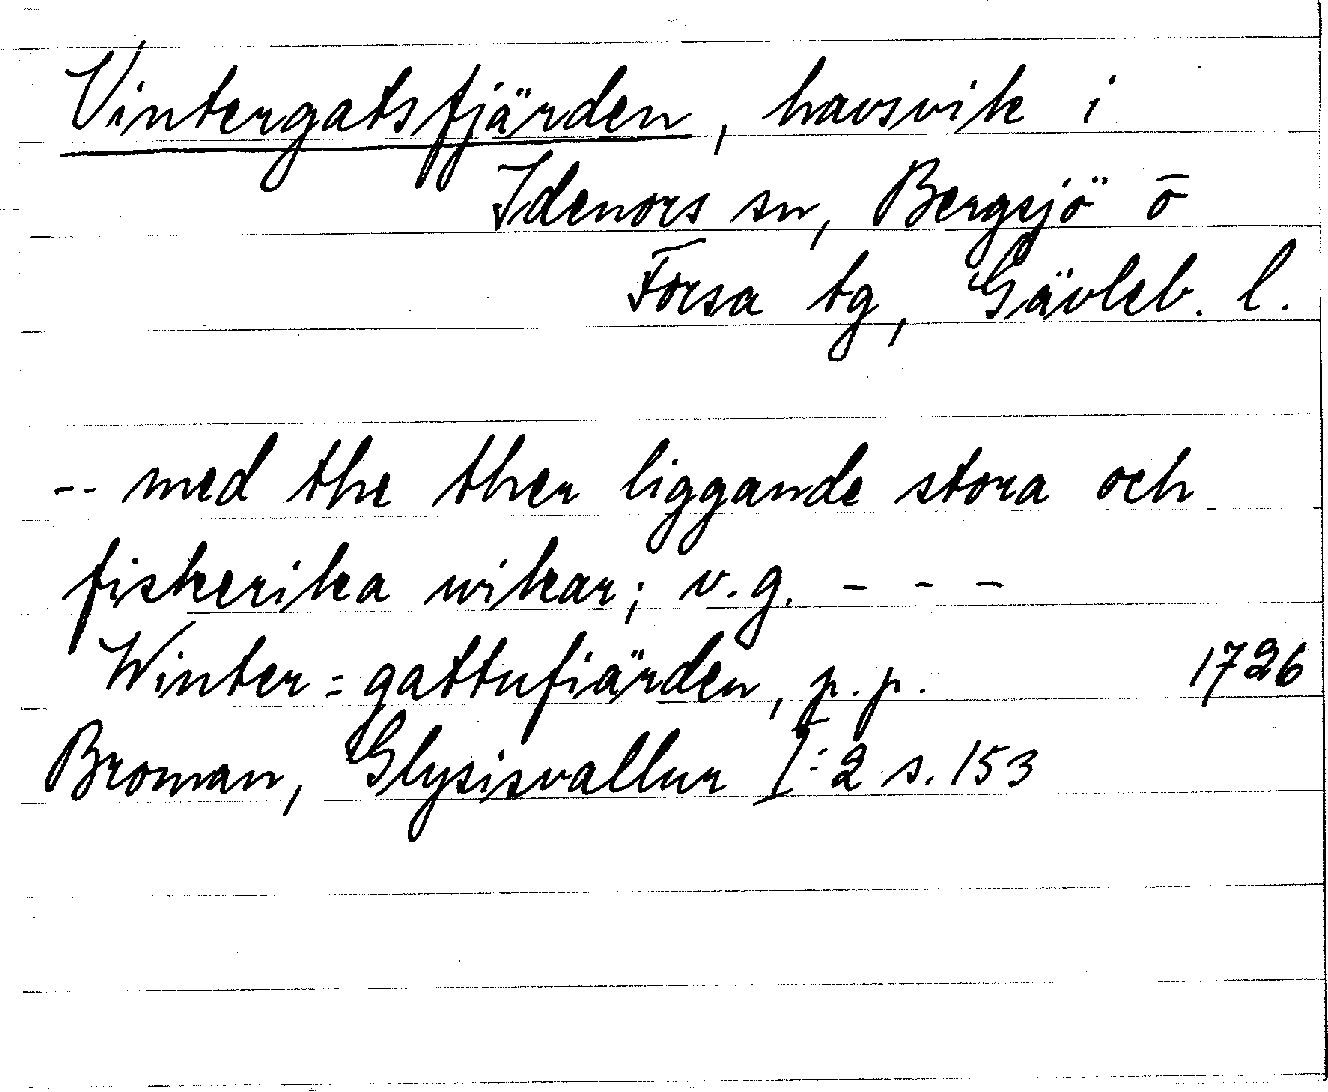 Vintergatsfjärden, havsvik i
Idenors sn, Bergsjö o̅
Forsa tg, Gävleb. l.
-- med the ther liggande stora och
fiskerika wikar; v.g. - - -
Winter=gattufiärden, p.p. 1726
Broman, Glysisvallur I:2 s. 153